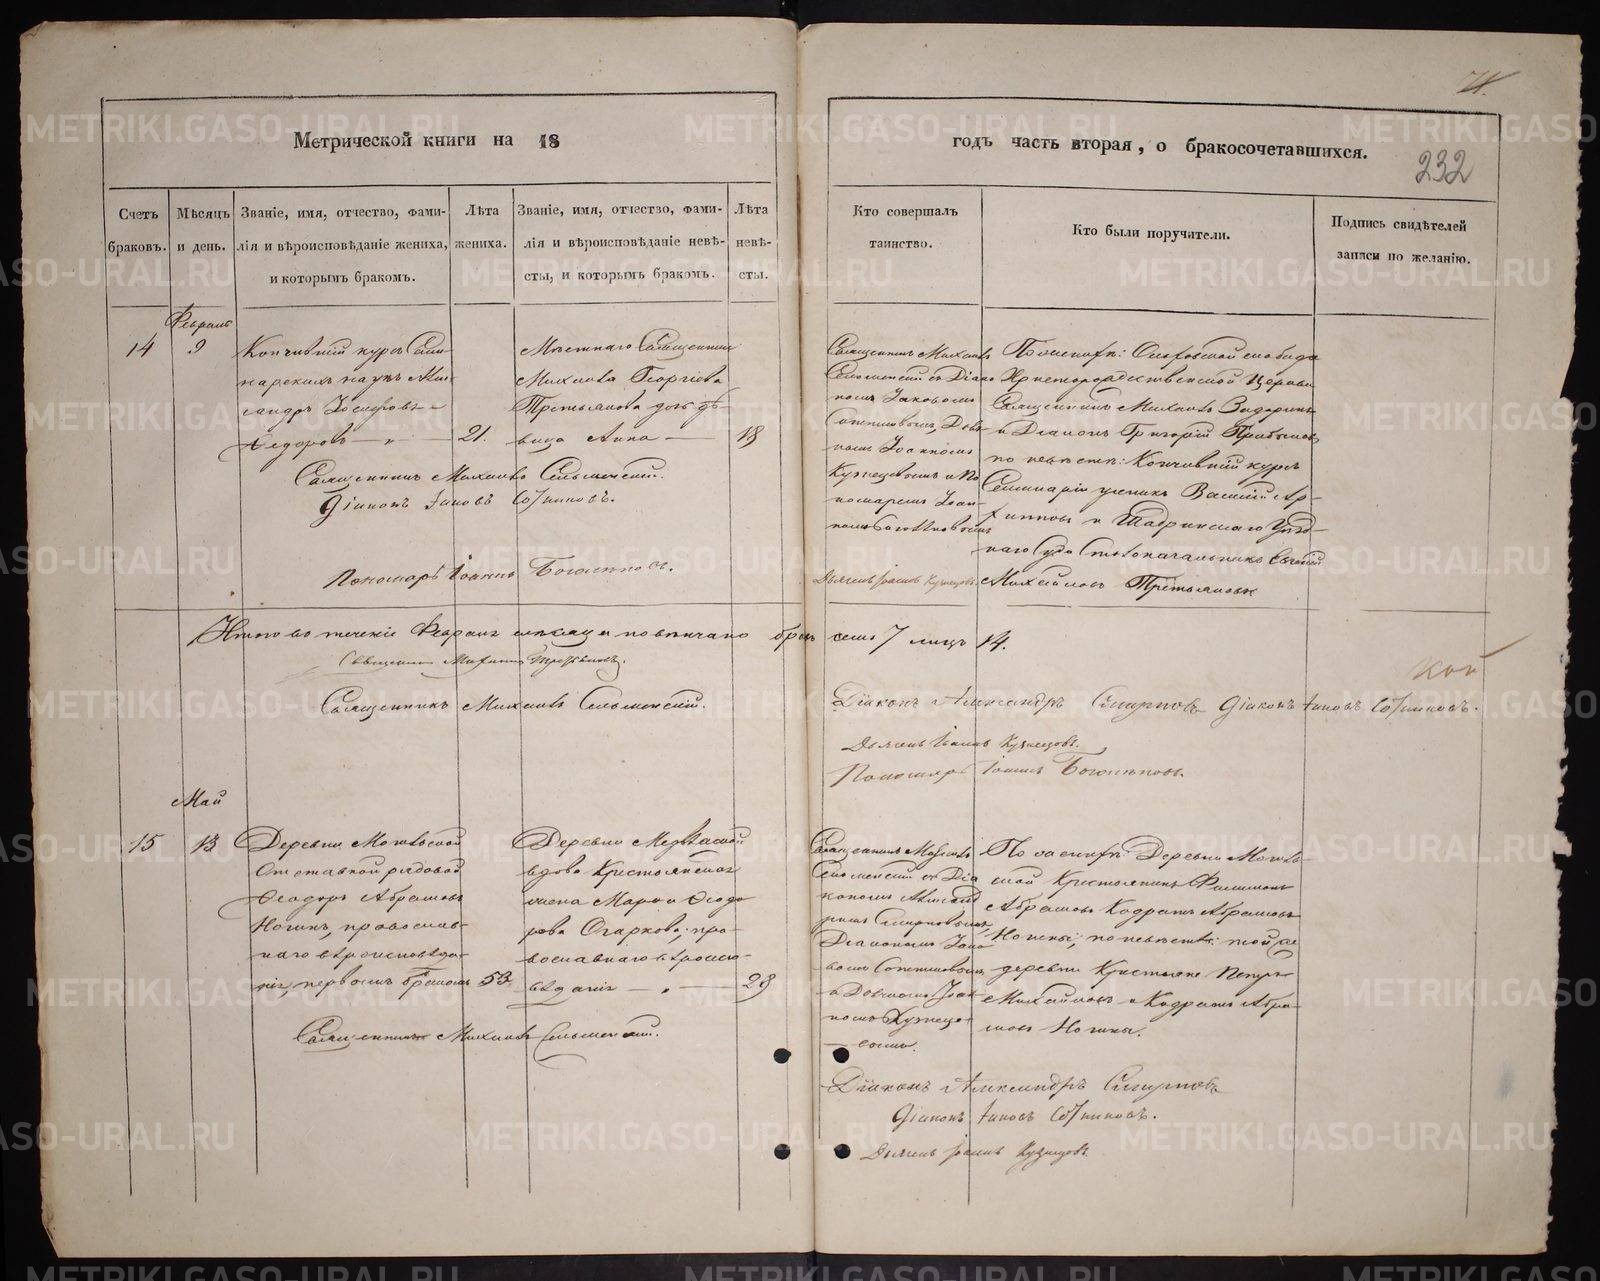 71.
Метрической книги на 18
годъ часть вторая, о бракосочетавшихся.
232
Счетъ браковъ.
Мѣсяцъ и день.
Званіе, имя, отчество, фами-
лія и вѣроисповѣданіе жениха,
и которымъ бракомъ.
Лѣта
жениха.
Званіе, имя, отчество, фами-
лія и вѣроисповѣданіе невѣ-
сты, и которымъ бракомъ.
Лѣта
невѣ-
сты.
Кто совершалъ
таинство.
Кто были поручатели.
Подпись свидѣтелей
записи по желанію.
Февраль
14
9
Кончившій курсъ Семи-
нарскихъ наукъ Алек-
сандръ Іосифовъ
Ѳедоровъ
21.
Мѣстнаго Священника
Михаила Георгіева
Третьякова дочь дѣ-
вица Анна
18
Священникъ Михаилъ
съ Діако
номъ Іаковомъ
Сотниковымъ, Дьяч-
комъ Іоанномъ
Кузнецовымъ и По
номаремъ Іоан
номъ
Дьячекъ Іоаннъ Кузнецовъ.
По женихѣ:
Христорождественской Церкви
Священникъ Михаилъ
и Діаконъ Григорій
по невѣстѣ: Кончившій курсъ
Семинаріи ученикъ Василій
и Шадринскаго Уѣзд-
наго Суда Столоначальникъ Евгеній
Михайловъ Третьяковъ
Священникъ Михаилъ Сельменскій.
Діаконъ Іаковъ Сотниковъ.
Пономарь Іоаннъ
Итого въ теченіе Февраля мѣсяца повѣнчано браковъ 7 лицъ 14.
Священникъ Михаилъ Третьяковъ.
Священникъ Михаилъ Сельменскій.
Діаконъ Александръ Смирновъ Діаконъ Іаковъ Сотниковъ.
Дьячекъ Іоаннъ Кузнецовъ.
Пономарь Іоаннъ
Май
15
13
Деревни
Отставной рядовой
Ѳеодоръ Абрамовъ
Ногинъ, православ-
наго вѣроисповѣда-
нія, первымъ бракомъ
53
Деревни
вдова Крестьянская
жена Марѳа Ѳеодо
рова Огаркова, пра-
вославнаго вѣроиспо-
вѣданія
28
Священникъ Михаилъ
съ Діа
кономъ Александ
ромъ Смирновымъ,
Діакономъ Іако
вомъ Сотниковымъ
и Дьячкомъ Іоан
номъ Кузнецо-
вымъ.
По женихѣ: Деревни
Крестьянинъ Филимонъ
Абрамовъ Кодратъ Абрамовъ
Ногины; по невѣстѣ: той же
деревни Крестьяне Петръ
Михайловъ и Кодратъ Абра-
мовъ Ногины.
Священникъ Михаилъ Сельменскій.
Діаконъ Александръ Смирновъ
Діаконъ Іаковъ Сотниковъ.
Дьячекъ Іоаннъ Кузнецовъ.